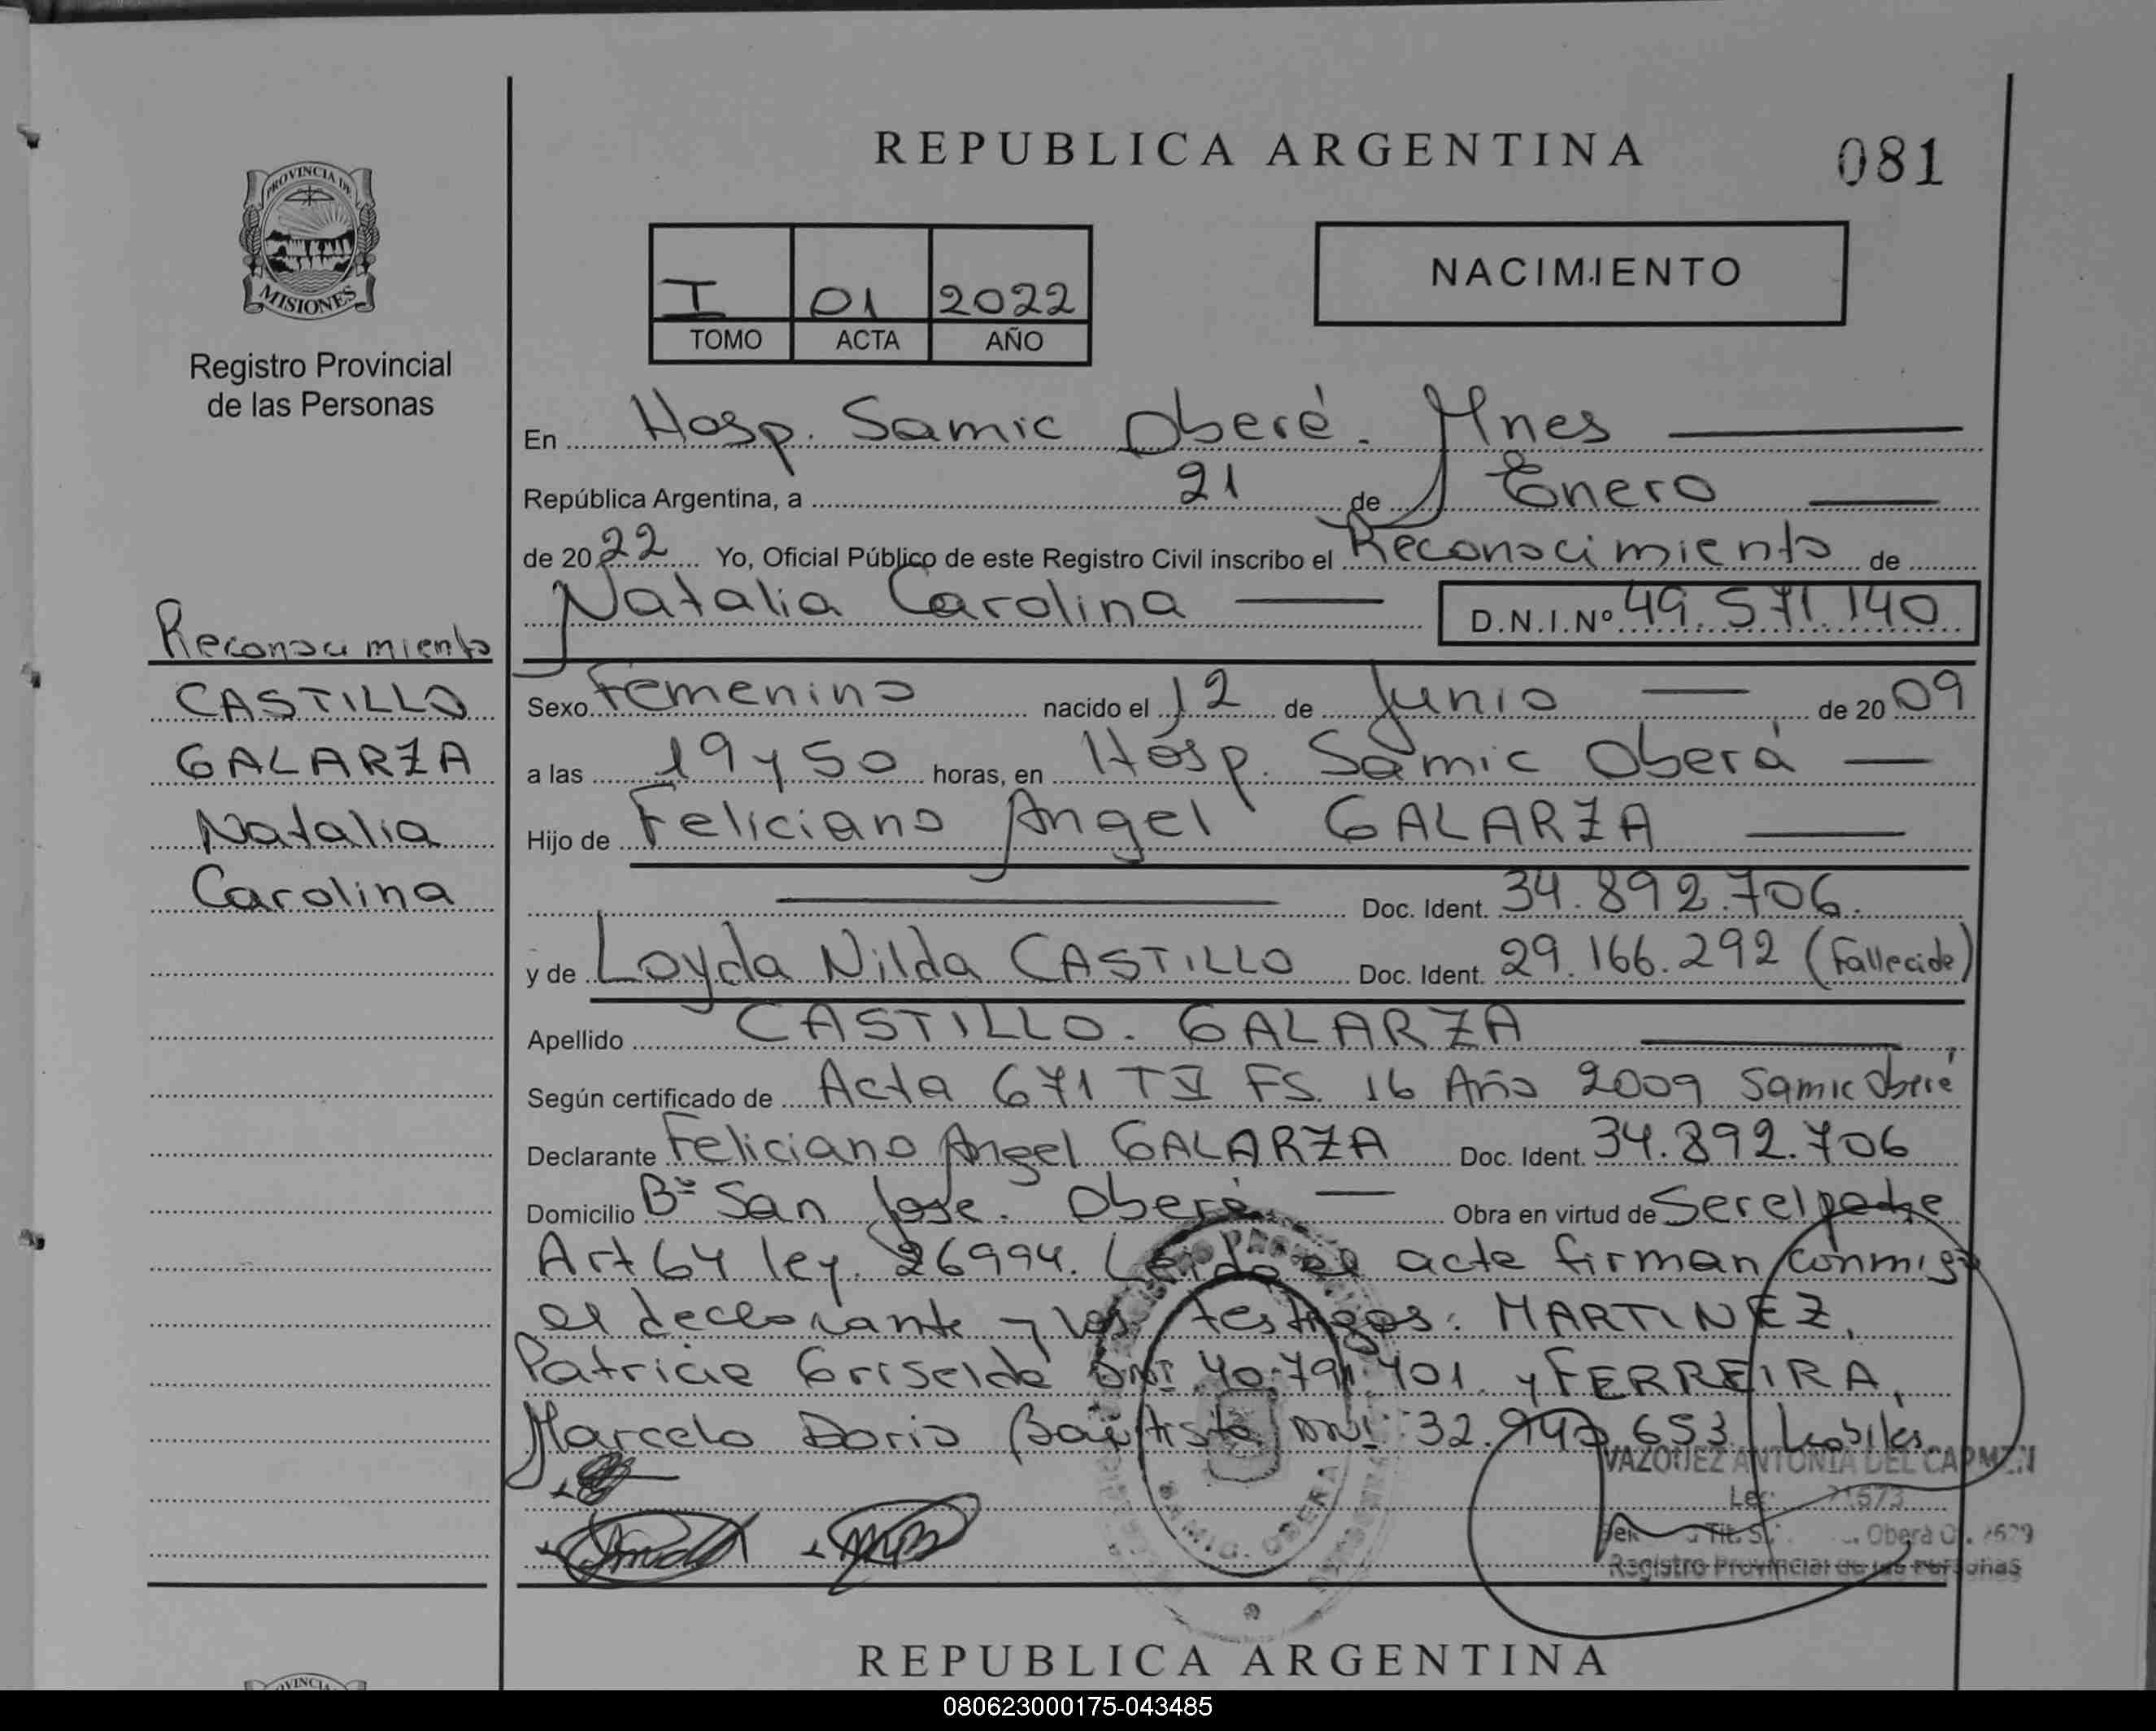 REPUBLICA ARGENTINA
081
PROVINCIA DE
MISIONES
Registro Provincial
de las Personas
I 01 2022
TOMO ACTA AÑO
NACIMIENTO
En Hosp. Samic Oberá. Mnes
República Argentina, a 21 de Enero
de 2022 Yo, Oficial Público de este Registro Civil inscribo el Reconocimiento de
Natalia Carolina D.N.I.Nº 49.571.140
Reconocimiento
CASTILLO
GALARZA
Natalia
Carolina
Sexo Femenino nacido el 12 de Junio de 2009
a las 19 y 50 horas, en Hosp. Samic Oberá
Hijo de Feliciano Angel GALARZA
Doc. Ident. 34.892.706.
y de Loyda Nilda CASTILLO Doc. Ident. 29.166.292 (Fallecida)
Apellido CASTILLO. GALARZA
Según certificado de Acta 671 TI FS. 16 Año 2009 Samic Oberá
Declarante Feliciano Angel GALARZA Doc. Ident. 34.892.706
Domicilio Bº San Jose. Oberá Obra en virtud de Ser el padre
Art 64 ley. 26994. Leida el acta firman conmigo
el declarante y los testigos: MARTINEZ,
Patricia Griselda DNI 40.791.401 y FERREIRA,
Marcelo Dario Bautista DNI: 32. 653 habiles.
VAZQUEZ ANTONIA DEL CARMEN
Registro Provincial de las Personas
SAMIC. OBERA
REPUBLICA ARGENTINA
080623000175-043485